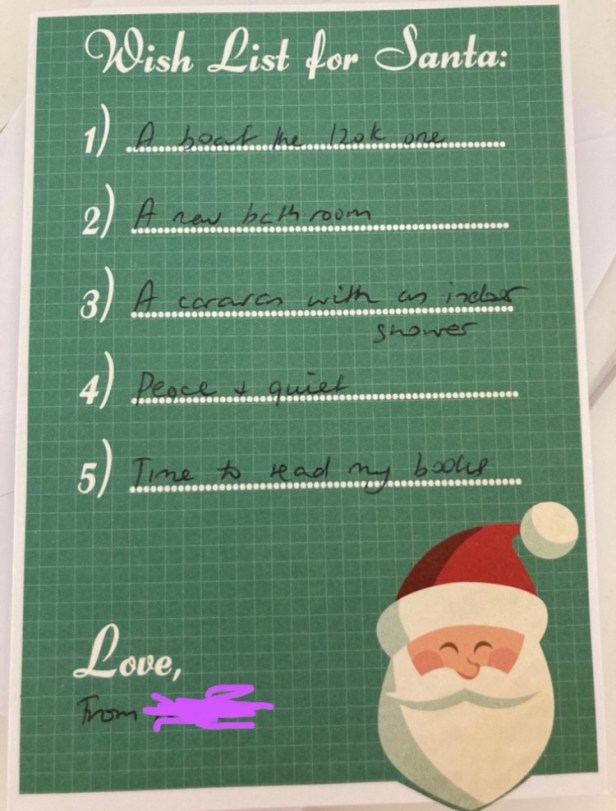 Wish List for Santa:
1) A boat the 120k one
2) A new bathroom
3) A caravan with an indoor
shower
4) Peace & quiet
5) Time to read my books
Love,
From